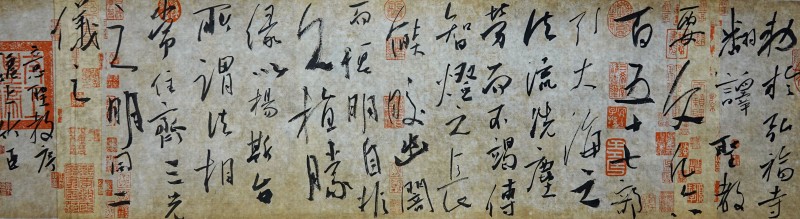 勅於弘福寺
翻譯聖教
要文凡六
百五十七部
引大海之
法流洗塵
勞而不竭傳
智燈之長
燄皎幽闇
而恒明自非
久植勝
緣以楊斯旨
所謂法相
常住齊三光
之明同二
儀之
聖教序
臣